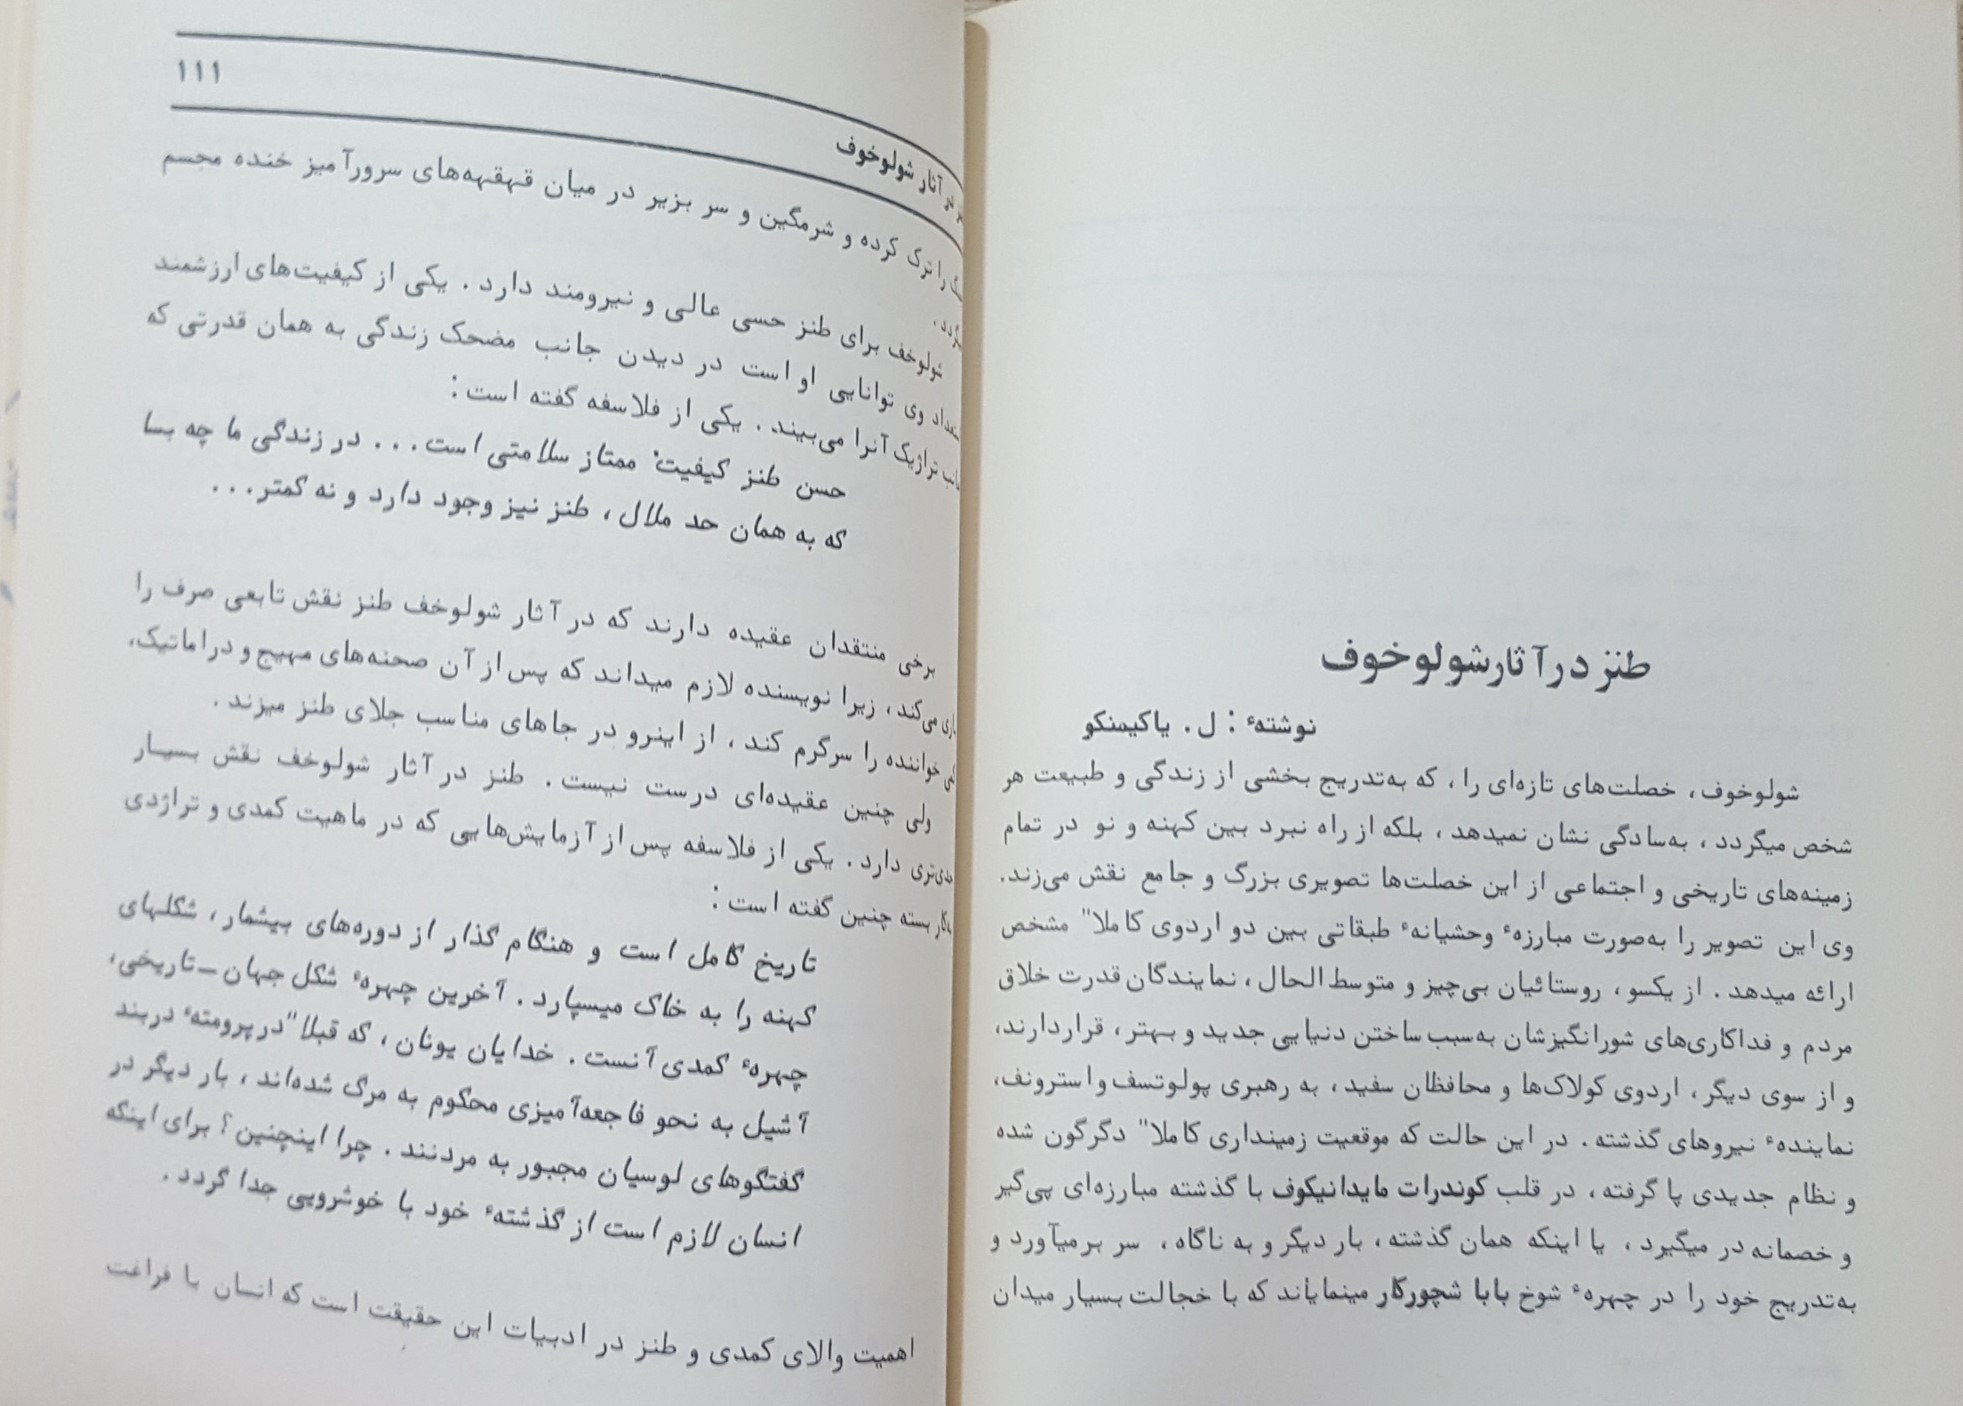 طنز در آثار شولوخوف
نوشتهٔ : ل. یاکیمنکو
شولوخوف، خصلت‌های تازه‌ای را، که به‌تدریج بخشی از زندگی و طبیعت هر
شخص میگردد، به‌سادگی نشان نمیدهد، بلکه از راه نبرد بین کهنه و نو در تمام
زمینه‌های تاریخی و اجتماعی از این خصلت‌ها تصویری بزرگ و جامع نقش می‌زند.
وی این تصویر را به‌صورت مبارزهٔ وحشیانهٔ طبقاتی بین دو اردوی کاملا" مشخص
ارائه میدهد. از یکسو، روستائیان بی‌چیز و متوسط الحال، نمایندگان قدرت خلاق
مردم و فداکاری‌های شورانگیزشان به‌سبب ساختن دنیایی جدید و بهتر، قراردارند،
و از سوی دیگر، اردوی کولاک‌ها و محافظان سفید، به رهبری پولوتسف و استرونف،
نمایندهٔ نیروهای گذشته. در این حالت که موقعیت زمینداری کاملا" دگرگون شده
و نظام جدیدی پا گرفته، در قلب کوندرات مایدانیکوف با گذشته مبارزه‌ای پی‌گیر
و خصمانه در میگیرد، یا اینکه همان گذشته، بار دیگر و به ناگاه، سر برمیآورد و
به‌تدریج خود را در چهرهٔ شوخ بابا شچورکار مینمایاند که با خجالت بسیار میدان
۱۱۱
در آثار شولوخوف
را ترک کرده و شرمگین و سر بزیر در میان قهقهه‌های سرورآمیز خنده مجسم
شولوخف برای طنز حسی عالی و نیرومند دارد. یکی از کیفیت‌های ارزشمند
وی توانایی او است در دیدن جانب مضحک زندگی به همان قدرتی که
تراژیک آنرا می‌بیند. یکی از فلاسفه گفته است:
حسن طنز کیفیت ممتاز سلامتی است... در زندگی ما چه بسا
که به همان حد ملال، طنز نیز وجود دارد و نه کمتر...
برخی منتقدان عقیده دارند که در آثار شولوخف طنز نقش تابعی صرف را
می‌کند، زیرا نویسنده لازم میداند که پس از آن صحنه‌های مهیج و دراماتیک،
خواننده را سرگرم کند، از اینرو در جاهای مناسب جلای طنز میزند.
ولی چنین عقیده‌ای درست نیست. طنز در آثار شولوخف نقش بسیار
دارد. یکی از فلاسفه پس از آزمایش‌هایی که در ماهیت کمدی و تراژدی
بسته چنین گفته است:
تاریخ کامل است و هنگام گذار از دوره‌های بیشمار، شکلهای
کهنه را به خاک میسپارد. آخرین چهرهٔ شکل جهان ـ تاریخی،
چهرهٔ کمدی آنست. خدایان یونان، که قبلا" در پرومتهٔ دربند
آشیل به نحو فاجعه‌آمیزی محکوم به مرگ شده‌اند، بار دیگر در
گفتگوهای لوسیان مجبور به مردنند. چرا اینچنین؟ برای اینکه
انسان لازم است از گذشتهٔ خود با خوشرویی جدا گردد.
اهمیت والای کمدی و طنز در ادبیات این حقیقت است که انسان با فراغت